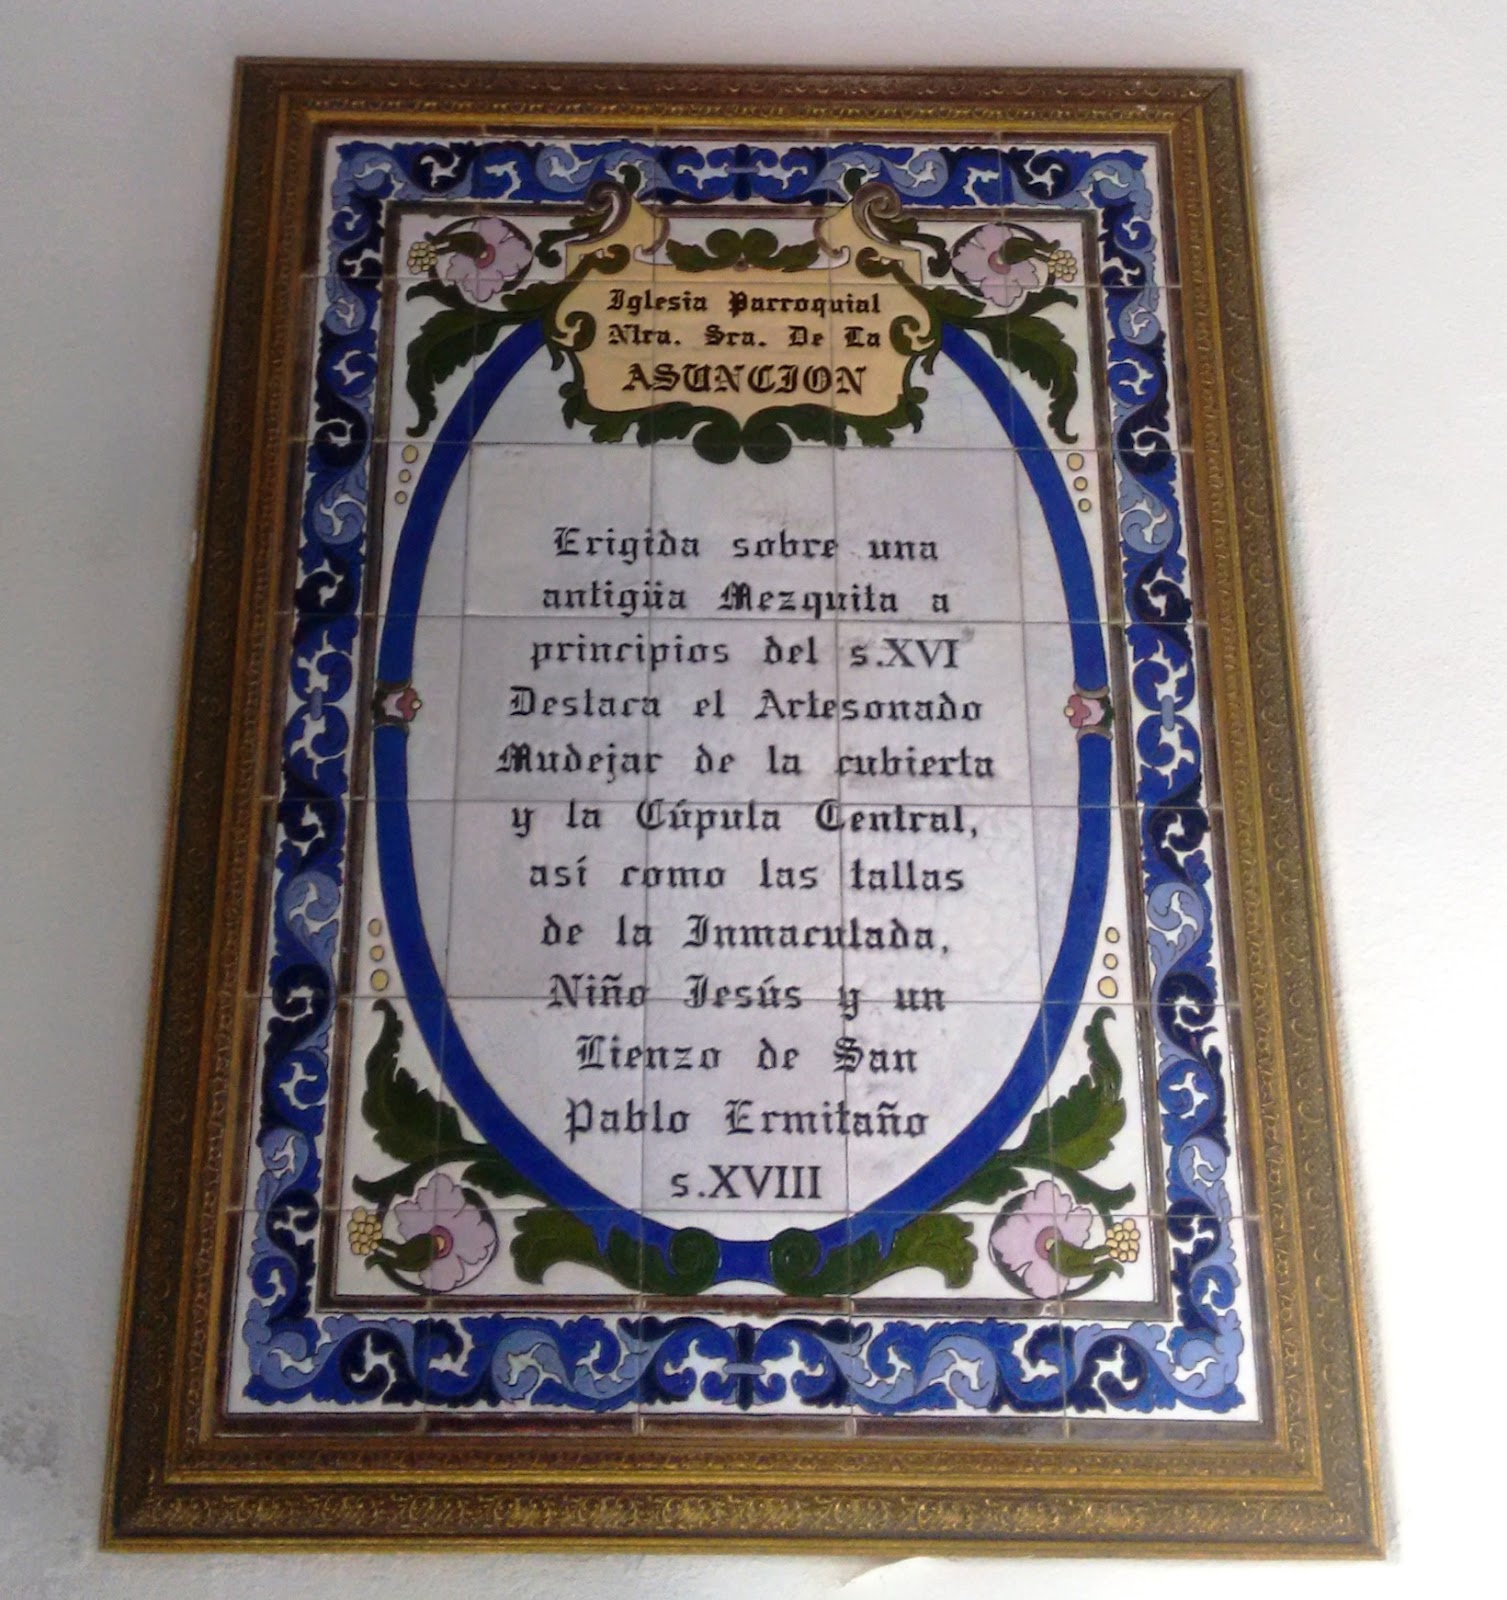 Iglesia Parroquial
Ntra. Sra. De La
ASUNCION
Erigida sobre una
antigüa Mezquita a
principios del s.XVI
Destaca el Artesonado
Mudejar de la cubierta
y la Cúpula Central,
así como las tallas
de la Inmaculada,
Niño Jesús y un
Lienzo de San
Pablo Ermitaño
s.XVIII